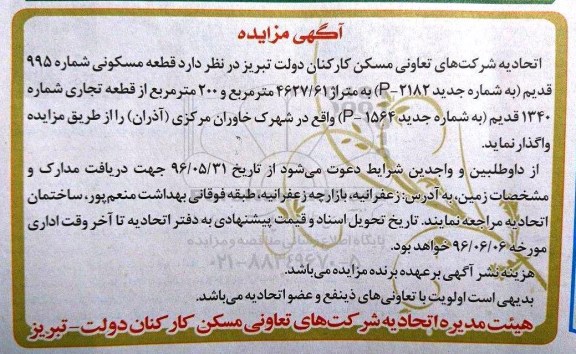 آگهی مزایده
اتحادیه شرکت‌های تعاونی مسکن کارکنان دولت تبریز در نظر دارد قطعه مسکونی شماره ۹۹۵
قدیم (به شماره جدید P-۲۱۸۲) به متراژ ۴۶۲۷/۶۱ مترمربع و ۲۰۰ مترمربع از قطعه تجاری شماره
۱۳۴۰ قدیم (به شماره جدید P-۱۵۶۴) واقع در شهرک خاوران مرکزی (آذران) را از طریق مزایده
واگذار نماید.
از داوطلبین و واجدین شرایط دعوت می‌شود از تاریخ ۹۶/۰۵/۳۱ جهت دریافت مدارک و
مشخصات زمین، به آدرس: زعفرانیه، بازارچه زعفرانیه، طبقه فوقانی بهداشت منعم‌پور، ساختمان
اتحادیه مراجعه نمایند. تاریخ تحویل اسناد و قیمت پیشنهادی به دفتر اتحادیه تا آخر وقت اداری
مورخه ۹۶/۰۶/۰۶ خواهد بود.
پایگاه اطلاع رسانی مناقصه و مزایده
۰۲۱-۸۸۳۴۹۶۷۰-۵
هزینه نشر آگهی بر عهده برنده مزایده می‌باشد.
بدیهی است اولویت با تعاونی‌های ذینفع و عضو اتحادیه می‌باشد.
هیئت مدیره اتحادیه شرکت‌های تعاونی مسکن کارکنان دولت-تبریز